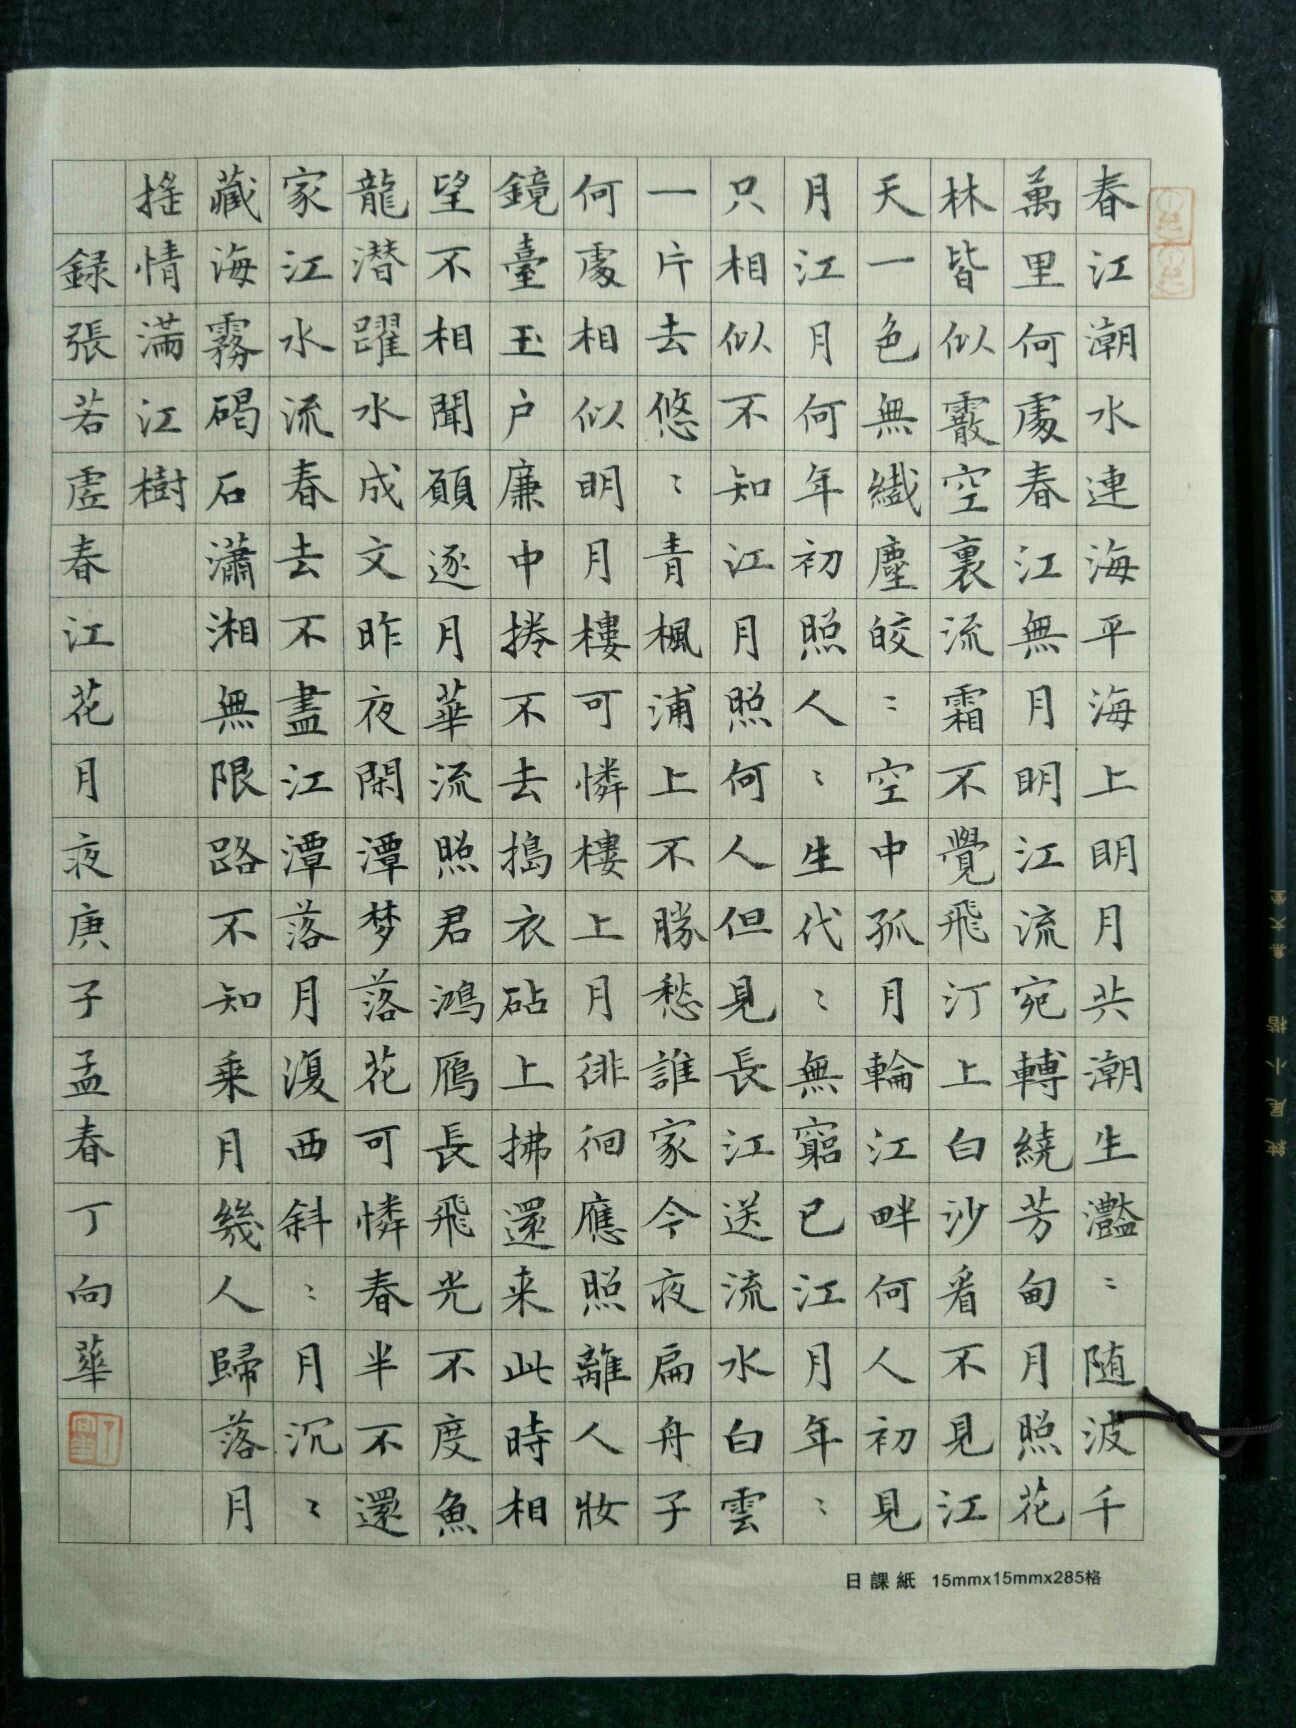 春江潮水連海平海上明月共潮生灩:随波千
萬里何處春江無月明江流宛轉繞芳甸月照花
林皆似霰空裏流霜不覺飛汀上白沙看不見江
天一色無纎塵皎:空中孤月輪江畔何人初見
月江月何年初照人:生代:無窮已江月年:
只相似不知江月照何人但見長江送流水白雲
一片去悠:青楓浦上不勝愁誰家今夜扁舟子
何處相似明月樓可憐樓上月徘徊應照離人妝
鏡臺玉户廉中捲不去搗衣砧上拂還来此時相
望不相聞願逐月華流照君鴻雁長飛光不度魚
龍潜躍水成文昨夜閑潭梦落花可憐春半不還
家江水流春去不盡江潭落月復西斜:月沉:
藏海霧碣石瀟湘無限路不知乘月幾人歸落月
摇情滿江樹
録張若虚春江花月夜庚子孟春丁向華
日課紙 15mmx15mmx285格
集文堂 小楷 純尾